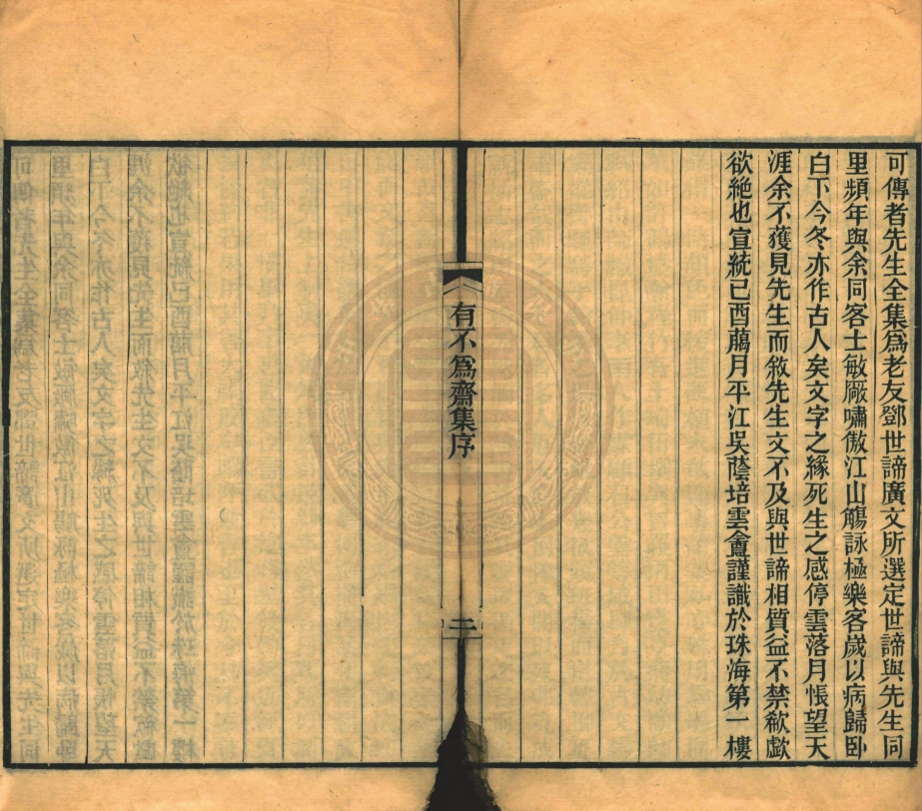 可傳者先生全集爲老友鄧世諦廣文所選定世諦與先生同
里頻年與余同客士敏厰嘯傲江山觴詠極樂客歲以病歸卧
白下今冬亦作古人矣文字之緣死生之感停雲落月悵望天
涯余不獲見先生而敘先生文不及與世諦相質益不禁欷歔
欲絶也宣統已酉蘮月平江吳蔭培雲盦謹識於珠海第一樓
有不爲齋集序
二